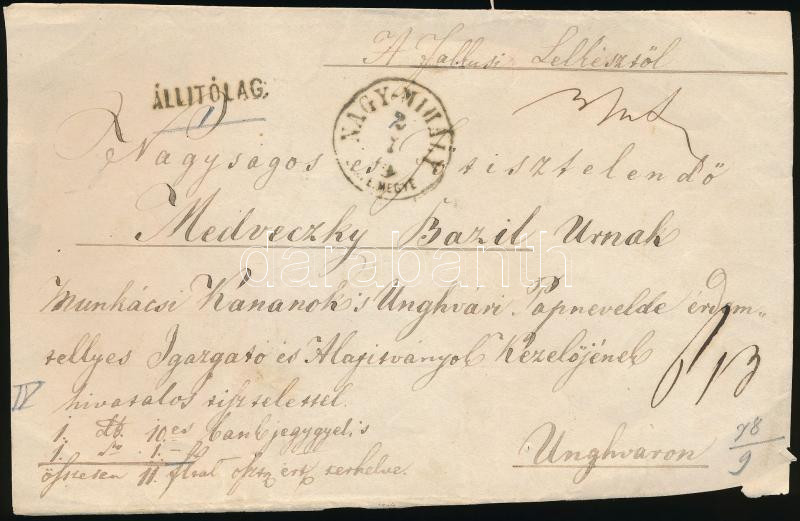 A Jallusi Lelkésztől
ÁLLITÓLAG.
NAGY-MIHÁLY
2
MEGYE
Nagyságos és Tisztelendő
Medveczky Bazil Urnak
Munkácsi Kananok 's Unghvári Papnevelde érdem„
tellyes Igazgató és Alapitványok Kezelőjének
hivatalos tisztelettel.
IV
1. db. 10es bankjegygyel is
1. 1.
összesen 11 terhelve.
Unghváron
78
9
darabanth